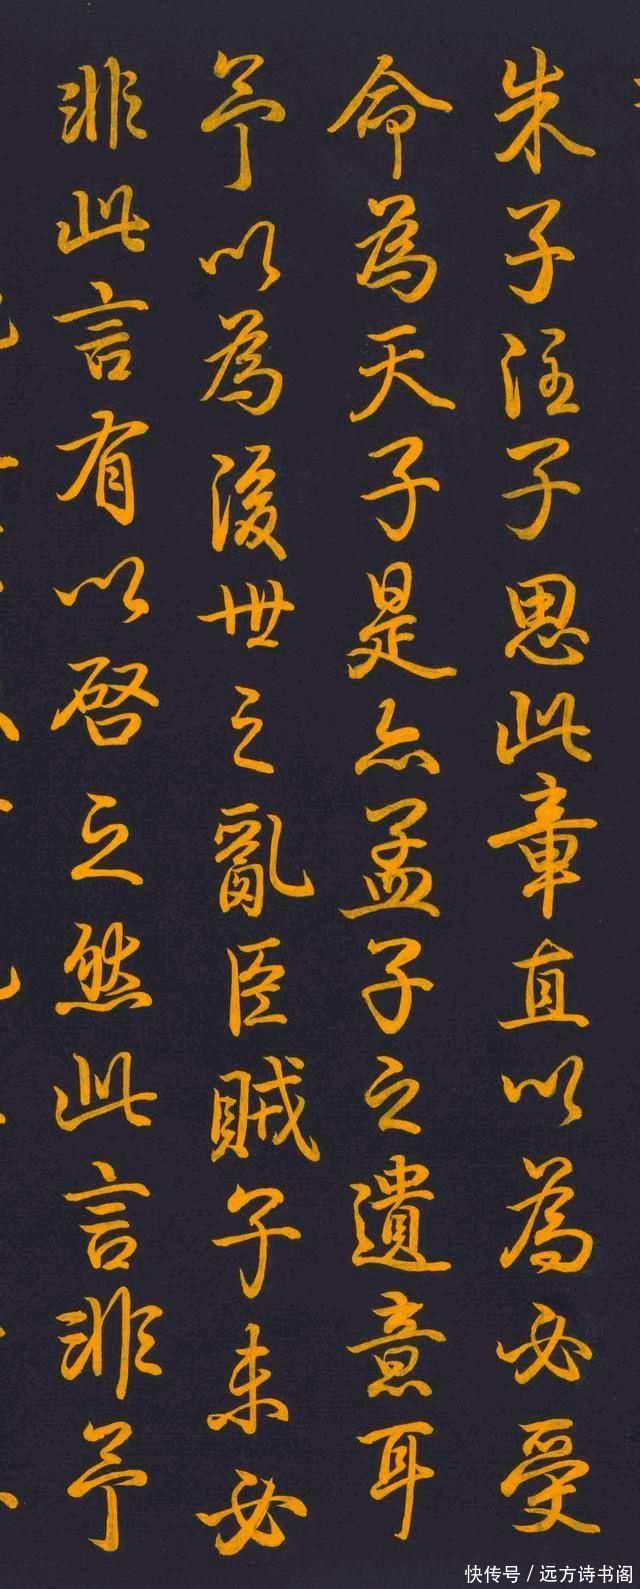 朱子注子思此章直以為必受
命為天子是亦孟子之遺意耳
予以為後世之亂臣賊子未必
非此言有以啓之然此言非予
快传号/远方诗书阁